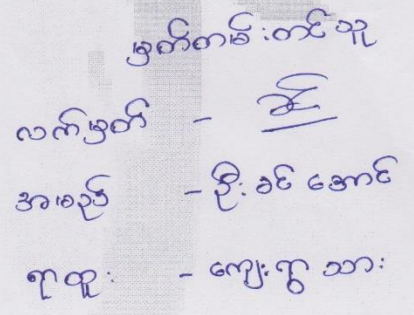 မှတ်တမ်းတင်သူ
လက်မှတ် -
အမည် - ဦးခင်အောင်
ရာထူး - ကျေးရွာသား